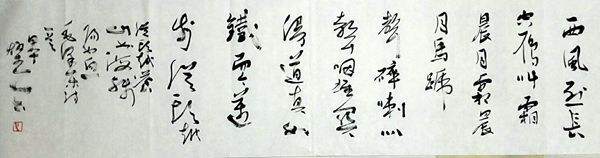 西風烈長
空雁叫霜
晨月霜晨
月馬蹄
聲碎喇叭
聲咽雄關
漫道真如
鐵而今邁
步從頭越
從頭越蒼
山如海殘
陽如血
毛澤東詩